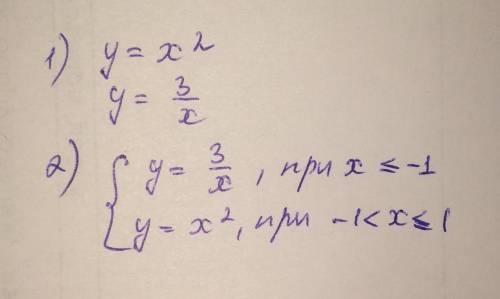 1) y = x²
y = 3/x
2) { y = 3/x, при x ≤ -1
y = x², при -1 < x ≤ 1